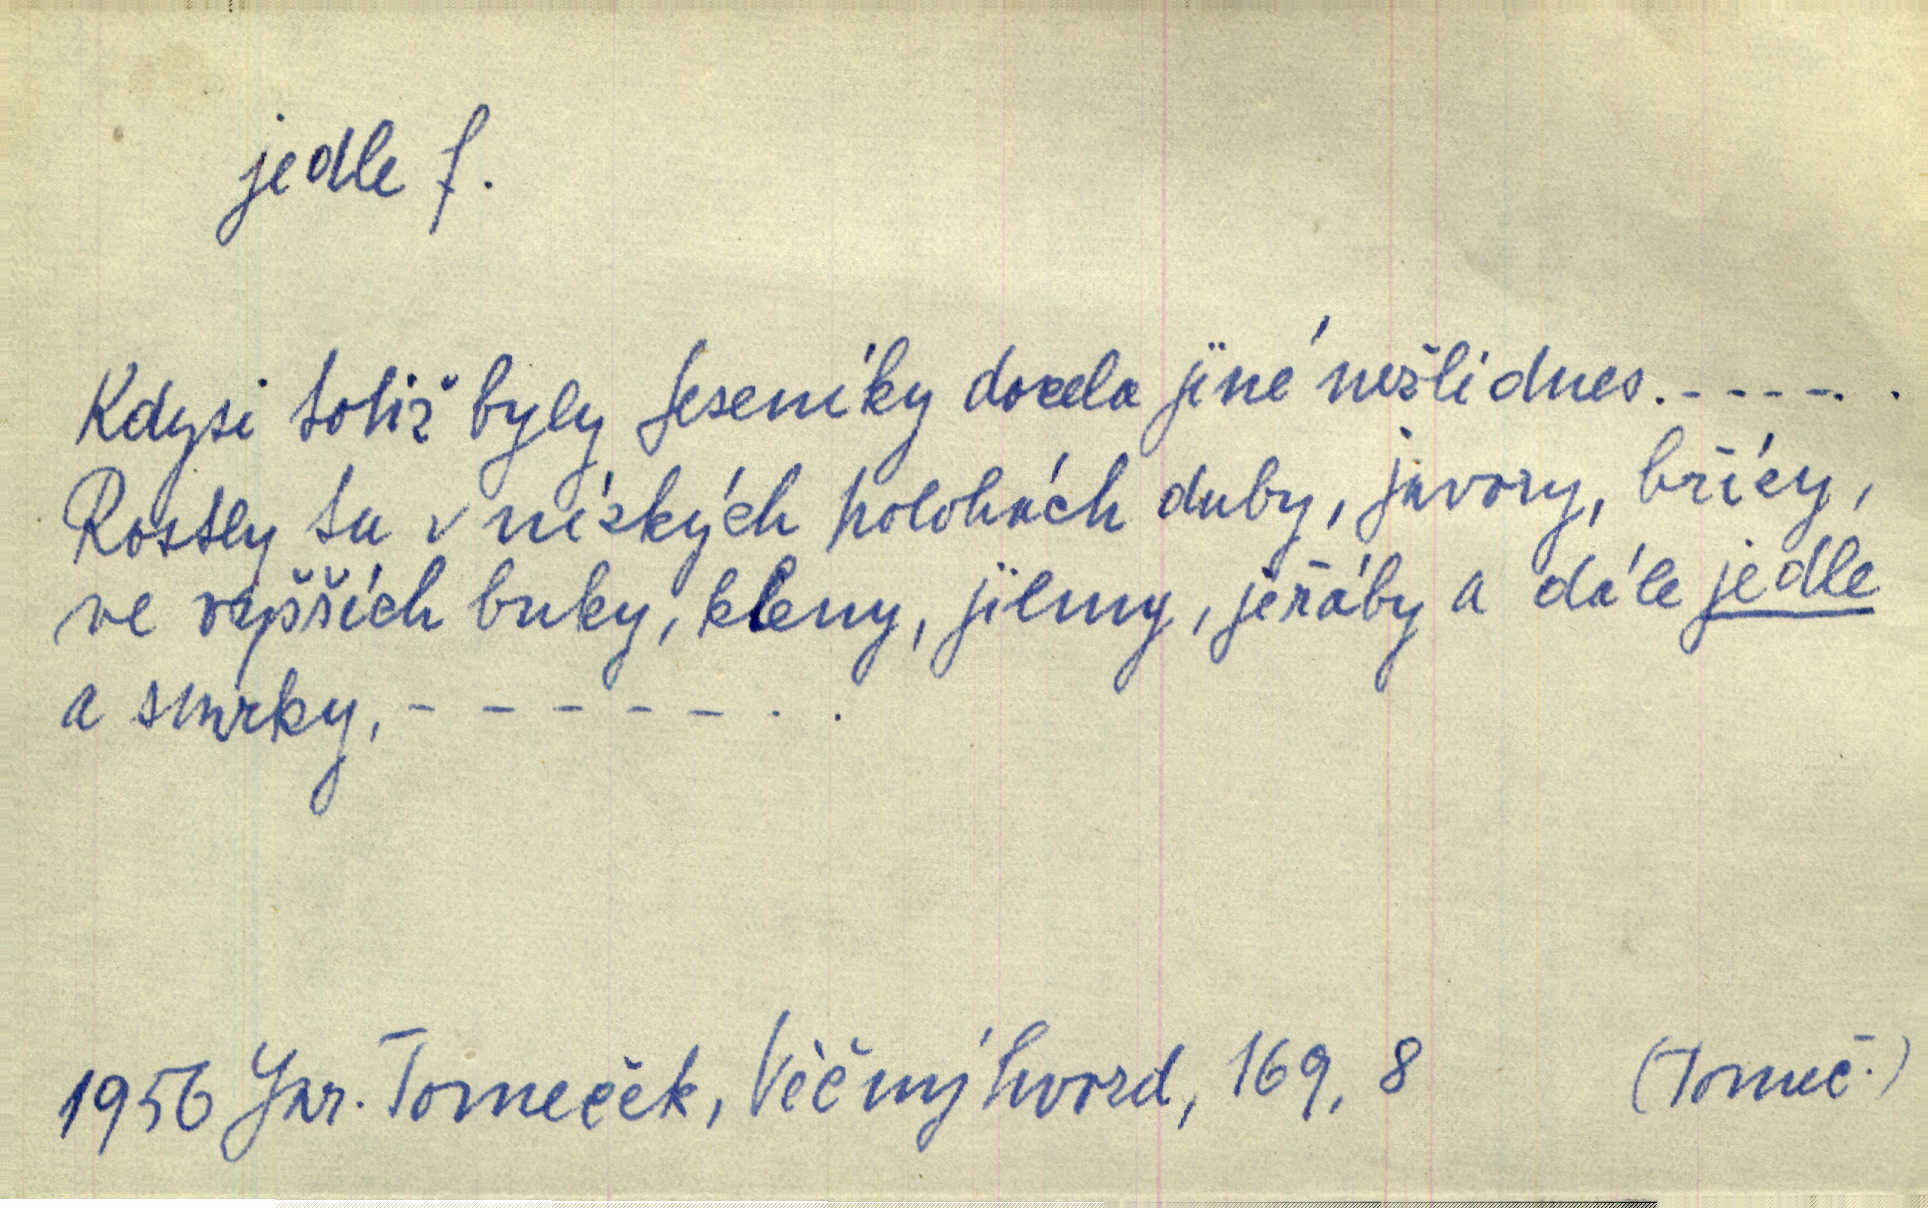 jedle f.
Kdysi totiž byly Jeseníky docela jiné nežli dnes. - - - - . .
Rostly tu v nízkých polohách duby, javory, břízy,
ve vyšších buky, kleny, jilmy, jeřáby a dále jedle
a smrky, - - - - - . .
1956 Jar. Tomeček, Věčný hvozd, 169, 8 (Tomeč.)